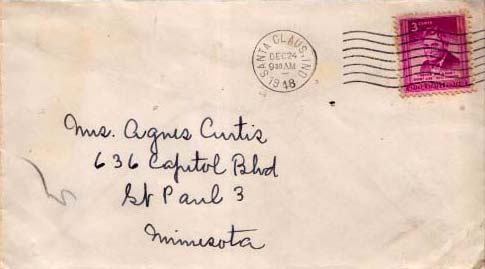 SANTA CLAUS, IND.
DEC 24
9 30 AM
1948
3 CENTS
Mrs. Agnes Curtis
636 Capitol Blvd
St Paul 3
Minnesota